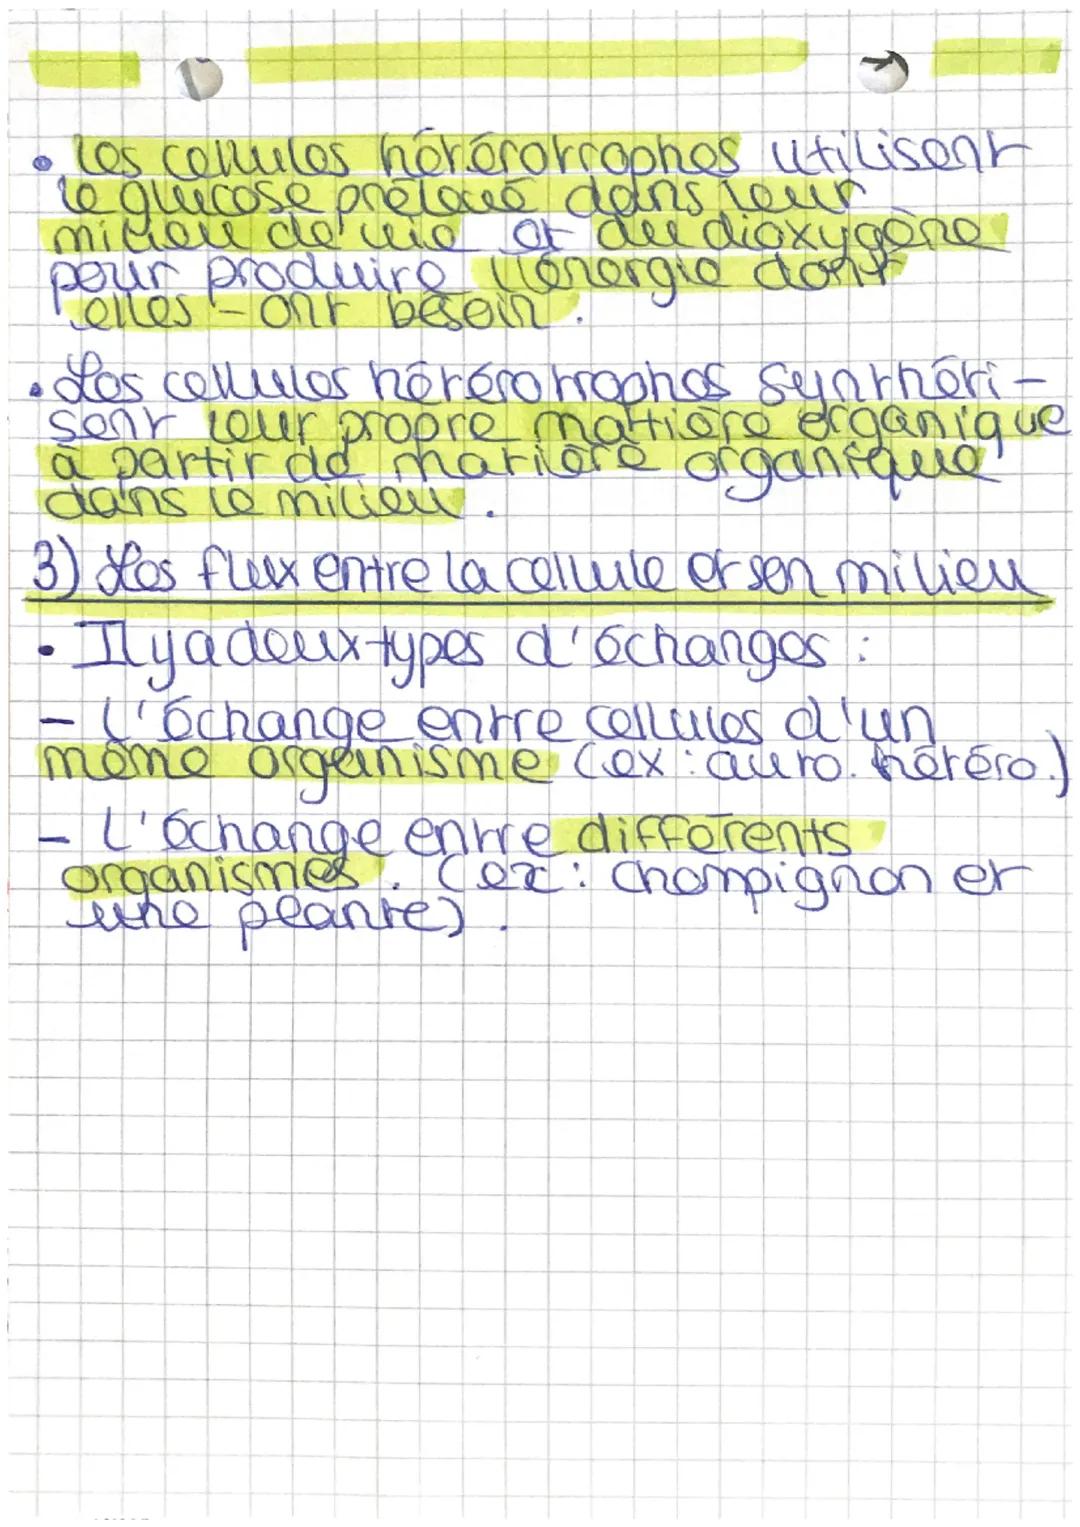 • Les cellules hétérotrophes utilisent
le glucose prélevé dans leur
milieu de vie et du dioxygène
pour produire l'énergie dont
elles - ont besoin.
• Les cellules hétérotrophes synthéti-
sent leur propre mattière organique
à partir de matière organique
dans le milieu.
3) Les flux entre la cellule et son milieu
• Il y a deux types d'échanges :
- L'échange entre cellules d'un
même organisme (ex : auto. hétéro.)
- L'échange entre différents
organismes. (ex : champignon et
une plante).